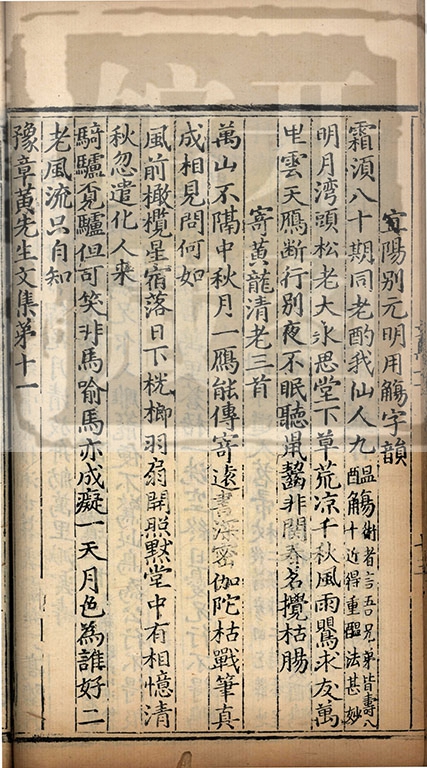 宜陽别元明用觴字韻
霜湏八十期同老酌我仙人九醖觴術者言吾兄弟皆壽八十近得重醖法甚妙
明月湾頭松老大永思堂下草荒凉千秋風雨鸎求友萬
里雲天鴈断行别夜不眠聽鼠齧非関春茗攪枯腸
寄黄龍清老三首
萬山不隔中秋月一鴈能傳寄遠書深密伽陀枯戰筆真
成相見問何如
風前橄欖星宿落日下桄榔羽扇開照默堂中有相憶清
秋忽遣化人来
騎驢覔驢但可笑非馬喻馬亦成癡一天月色為誰好二
老風流只自知
豫章黄先生文集第十一